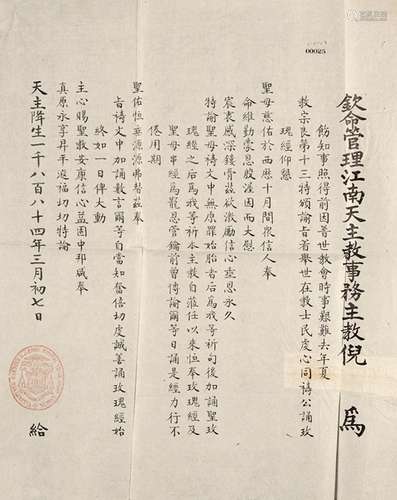 00025
欽命管理江南天主教事務主教倪 為
飭知事照得前因普世教會時事艱難去年夏
教宗良第十三特頒諭旨著舉世在教士民虔心同禱公誦玫
瑰經仰懇
聖母慈佑於西歷十月間衆信人奉
命維勤蒙恩殷渥因而大慰
宸衷感深骨茲欲激勵信心垂恩永久
特諭聖母禱文中無原罪始胎者后為我等祈句後加誦聖玫
瑰經之后為我等祈本主教自蒞任以來恒奉玫瑰經及
聖母串經為寵恩管鑰前曾傳諭爾等日誦是經力行不
倦用期
聖佑恒垂源源弗替茲奉
旨禱文中加誦數言爾等自當知奮倍切虔誠善誦玫瑰經始
終如一日俾大動
主心賜聖教安康信心益固中邦咸奉
真原永享昇平遐福切切特諭
天主降生一千八百八十四年三月初七日 給